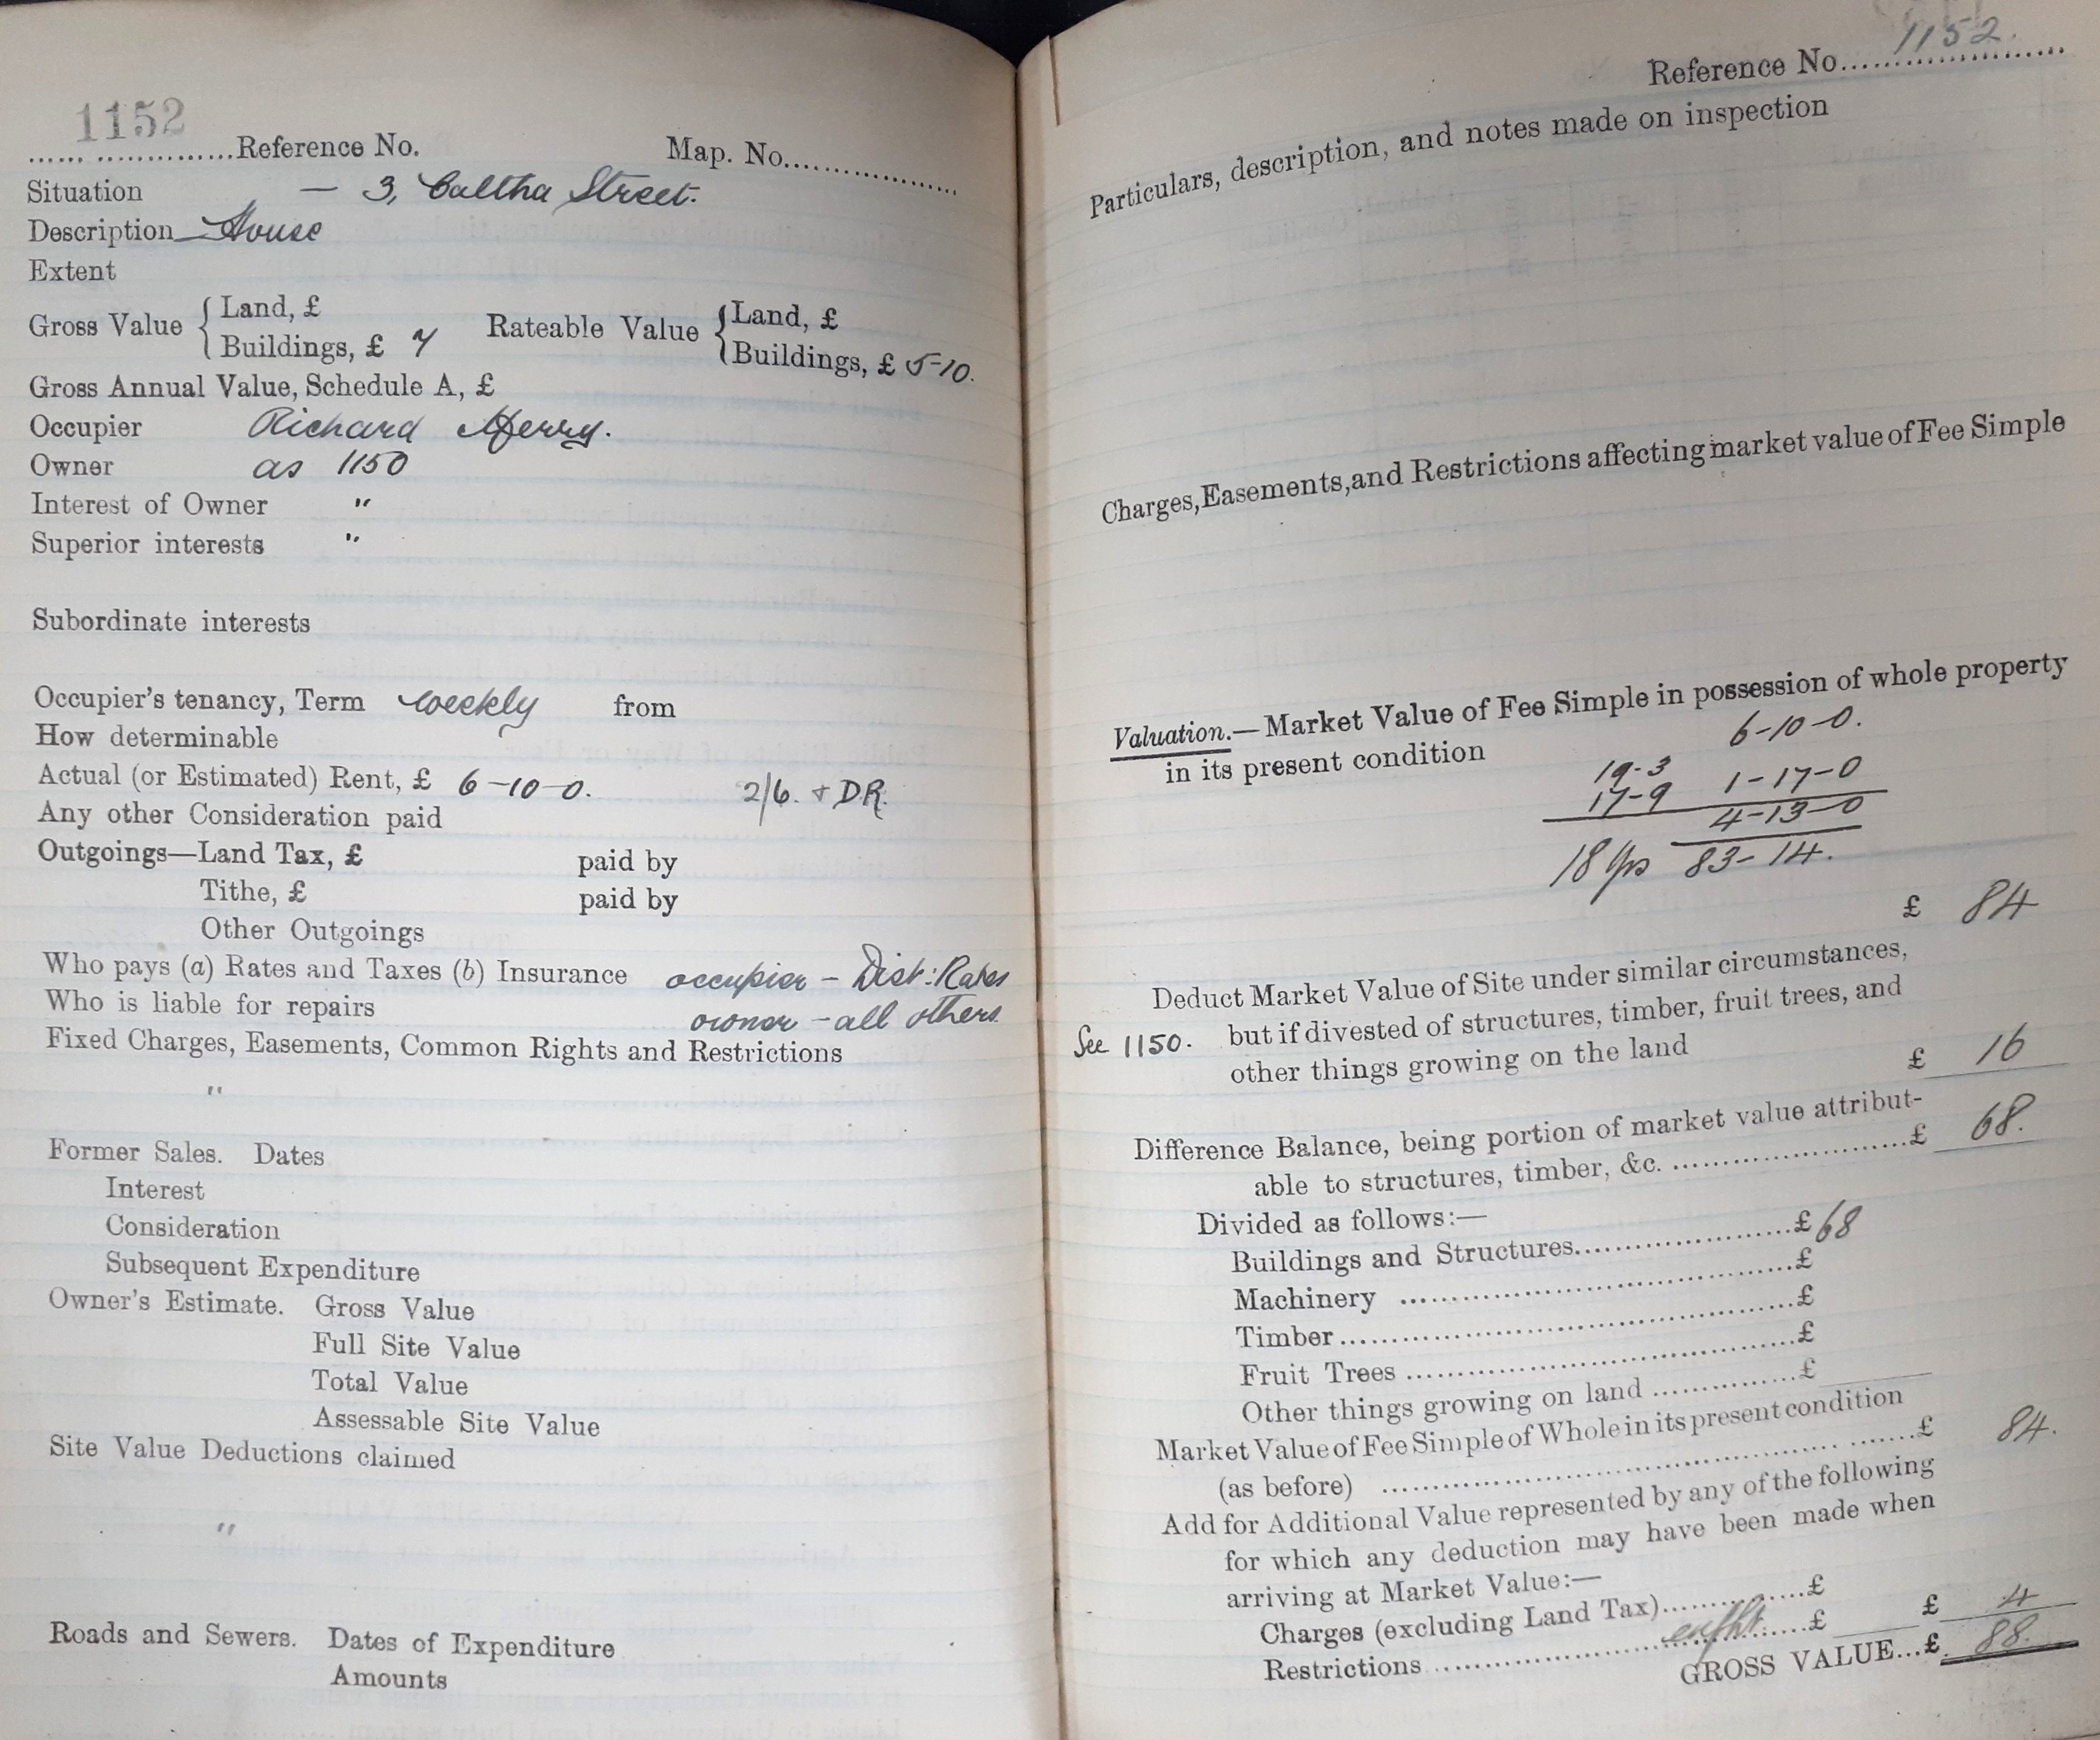 1152
...... ..............Reference No. Map. No....................
Situation — 3, Caltha Street.
Description House
Extent
Gross Value { Land, £ Rateable Value { Land, £
Buildings, £ 7 Buildings, £ 5-10.
Gross Annual Value, Schedule A, £
Occupier Richard Merry.
Owner as 1150
Interest of Owner "
Superior interests "
Subordinate interests
Occupier's tenancy, Term weekly from
How determinable
Actual (or Estimated) Rent, £ 6-10-0. 2/6. + D.R.
Any other Consideration paid
Outgoings—Land Tax, £ paid by
Tithe, £ paid by
Other Outgoings
Who pays (a) Rates and Taxes (b) Insurance occupier - Dist: Rates
Who is liable for repairs owner - all others.
Fixed Charges, Easements, Common Rights and Restrictions
"
Former Sales. Dates
Interest
Consideration
Subsequent Expenditure
Owner's Estimate. Gross Value
Full Site Value
Total Value
Assessable Site Value
Site Value Deductions claimed
"
Roads and Sewers. Dates of Expenditure
Amounts
Reference No. 1152.
Particulars, description, and notes made on inspection
Charges, Easements, and Restrictions affecting market value of Fee Simple
Valuation.—Market Value of Fee Simple in possession of whole property
in its present condition 6-10-0.
19-3 1-17-0
17-9 4-13-0
18 yrs 83-14.
£ 84
Deduct Market Value of Site under similar circumstances,
See 1150. but if divested of structures, timber, fruit trees, and
other things growing on the land £ 16
Difference Balance, being portion of market value attribut-
able to structures, timber, &c. ..............................£ 68.
Divided as follows:—
Buildings and Structures..........................£ 68
Machinery ..............................................£
Timber.....................................................£
Fruit Trees ..............................................£
Other things growing on land ................£
Market Value of Fee Simple of Whole in its present condition
(as before) ................................................£ 84.
Add for Additional Value represented by any of the following
for which any deduction may have been made when
arriving at Market Value:—
Charges (excluding Land Tax)..............£
Restrictions ..............................£ £ 4
GROSS VALUE...£ 88.